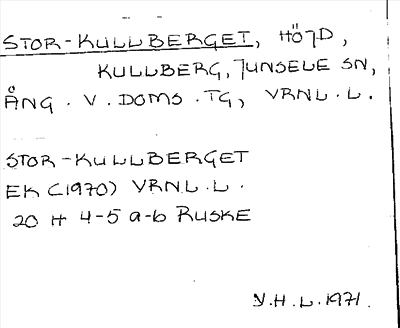 STOR-KULLBERGET, HÖJD,
KULLBERG, JUNSELE SN,
ÅNG. V. DOMS. TG, VRNL. L.
STOR-KULLBERGET
EK (1970) VRNL. L.
20 H 4-5 a-b RUSKE
Y.H.L. 1971.